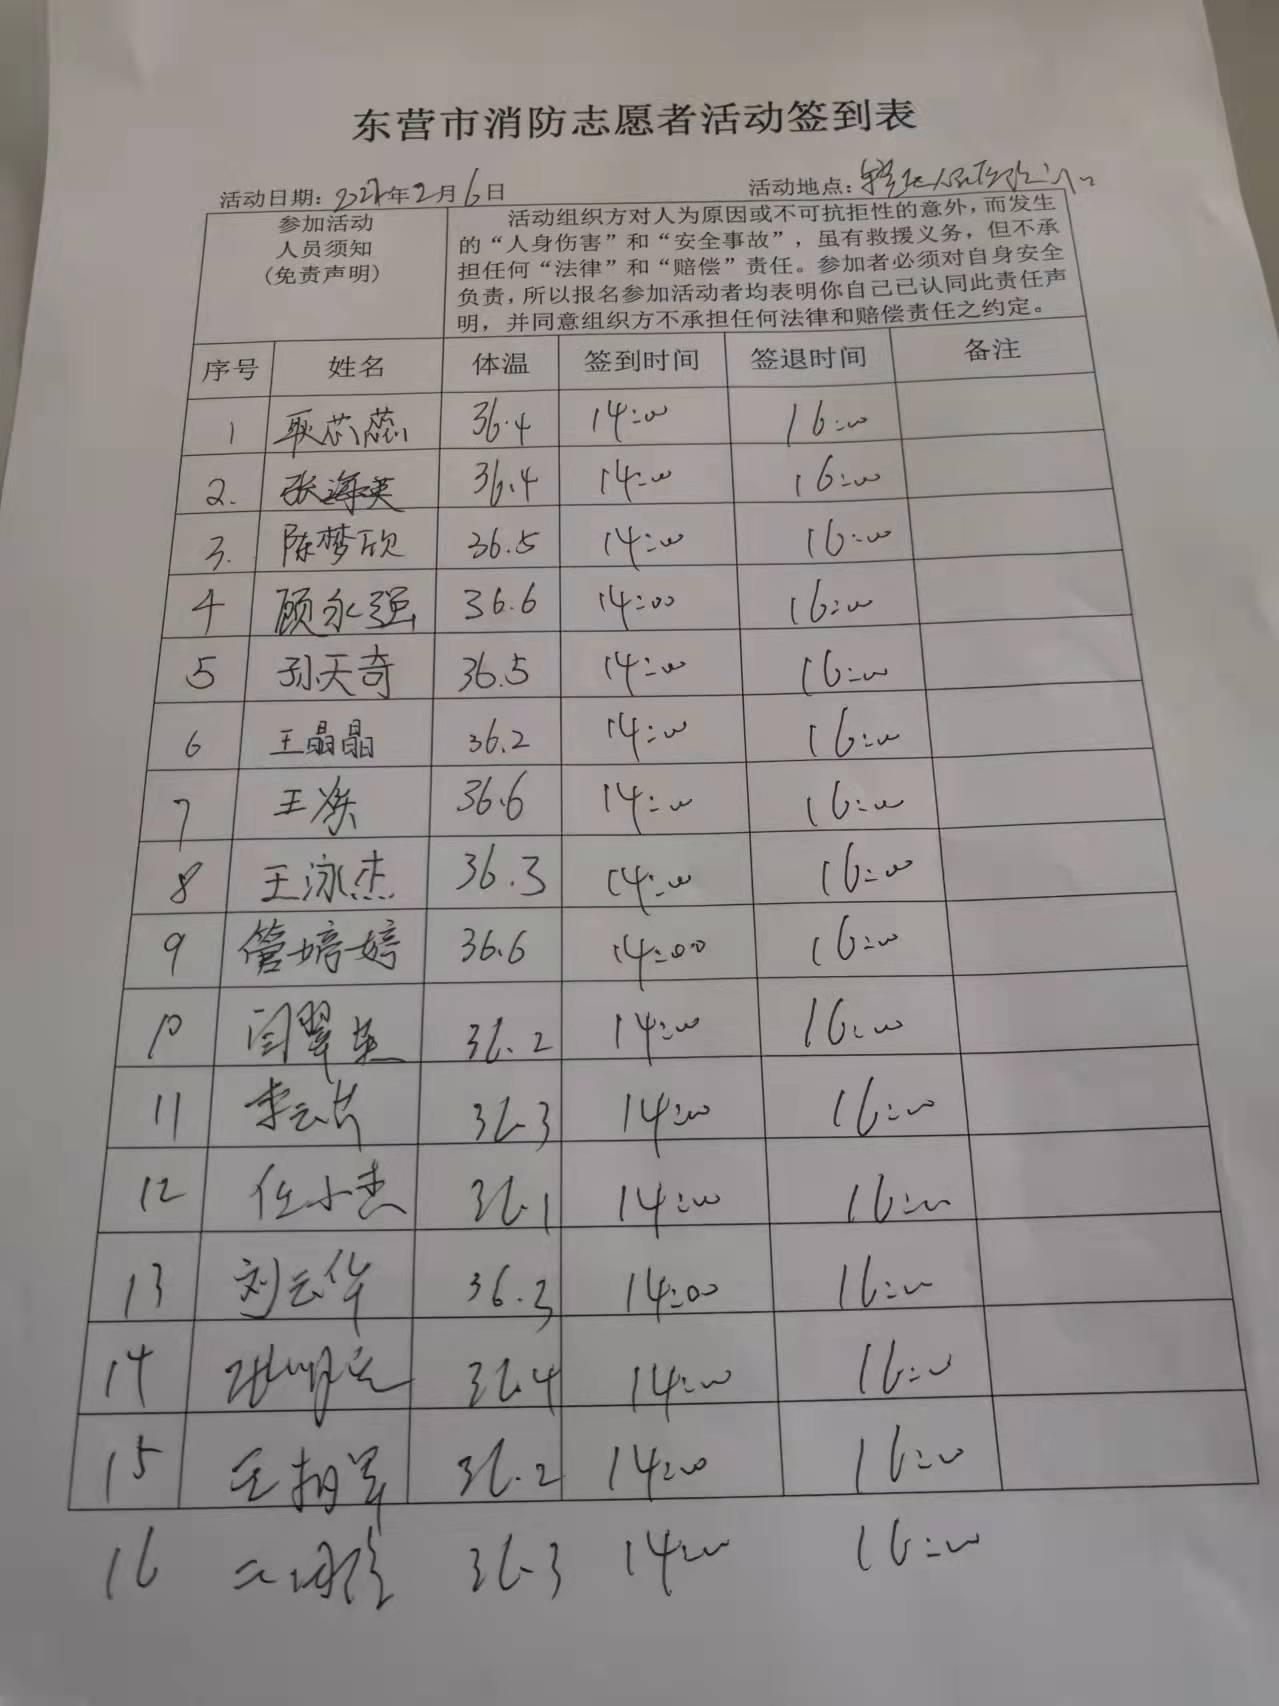 东营市消防志愿者活动签到表
活动日期：2022年2月6日 活动地点：
参加活动
人员须知
（免责声明）
活动组织方对人为原因或不可抗拒性的意外，而发生
的“人身伤害”和“安全事故”，虽有救援义务，但不承
担任何“法律”和“赔偿”责任。参加者必须对自身安全
负责，所以报名参加活动者均表明你自己已认同此责任声
明，并同意组织方不承担任何法律和赔偿责任之约定。
序号 姓名 体温 签到时间 签退时间 备注
1 耿芯蕊 36.4 14:00 16:00
2. 张海英 36.4 14:00 16:00
3. 陈梦欣 36.5 14:00 16:00
4 顾永强 36.6 14:00 16:00
5 孙天奇 36.5 14:00 16:00
6 王晶晶 36.2 14:00 16:00
7 王 36.6 14:00 16:00
8 王泳杰 36.3 14:00 16:00
9 管婷婷 36.6 14:00 16:00
10 闫翠 36.2 14:00 16:00
11 李云 36.3 14:00 16:00
12 任小杰 36.1 14:00 16:00
13 刘云华 36.3 14:00 16:00
14 36.4 14:00 16:00
15 36.2 14:00 16:00
16 36.3 14:00 16:00